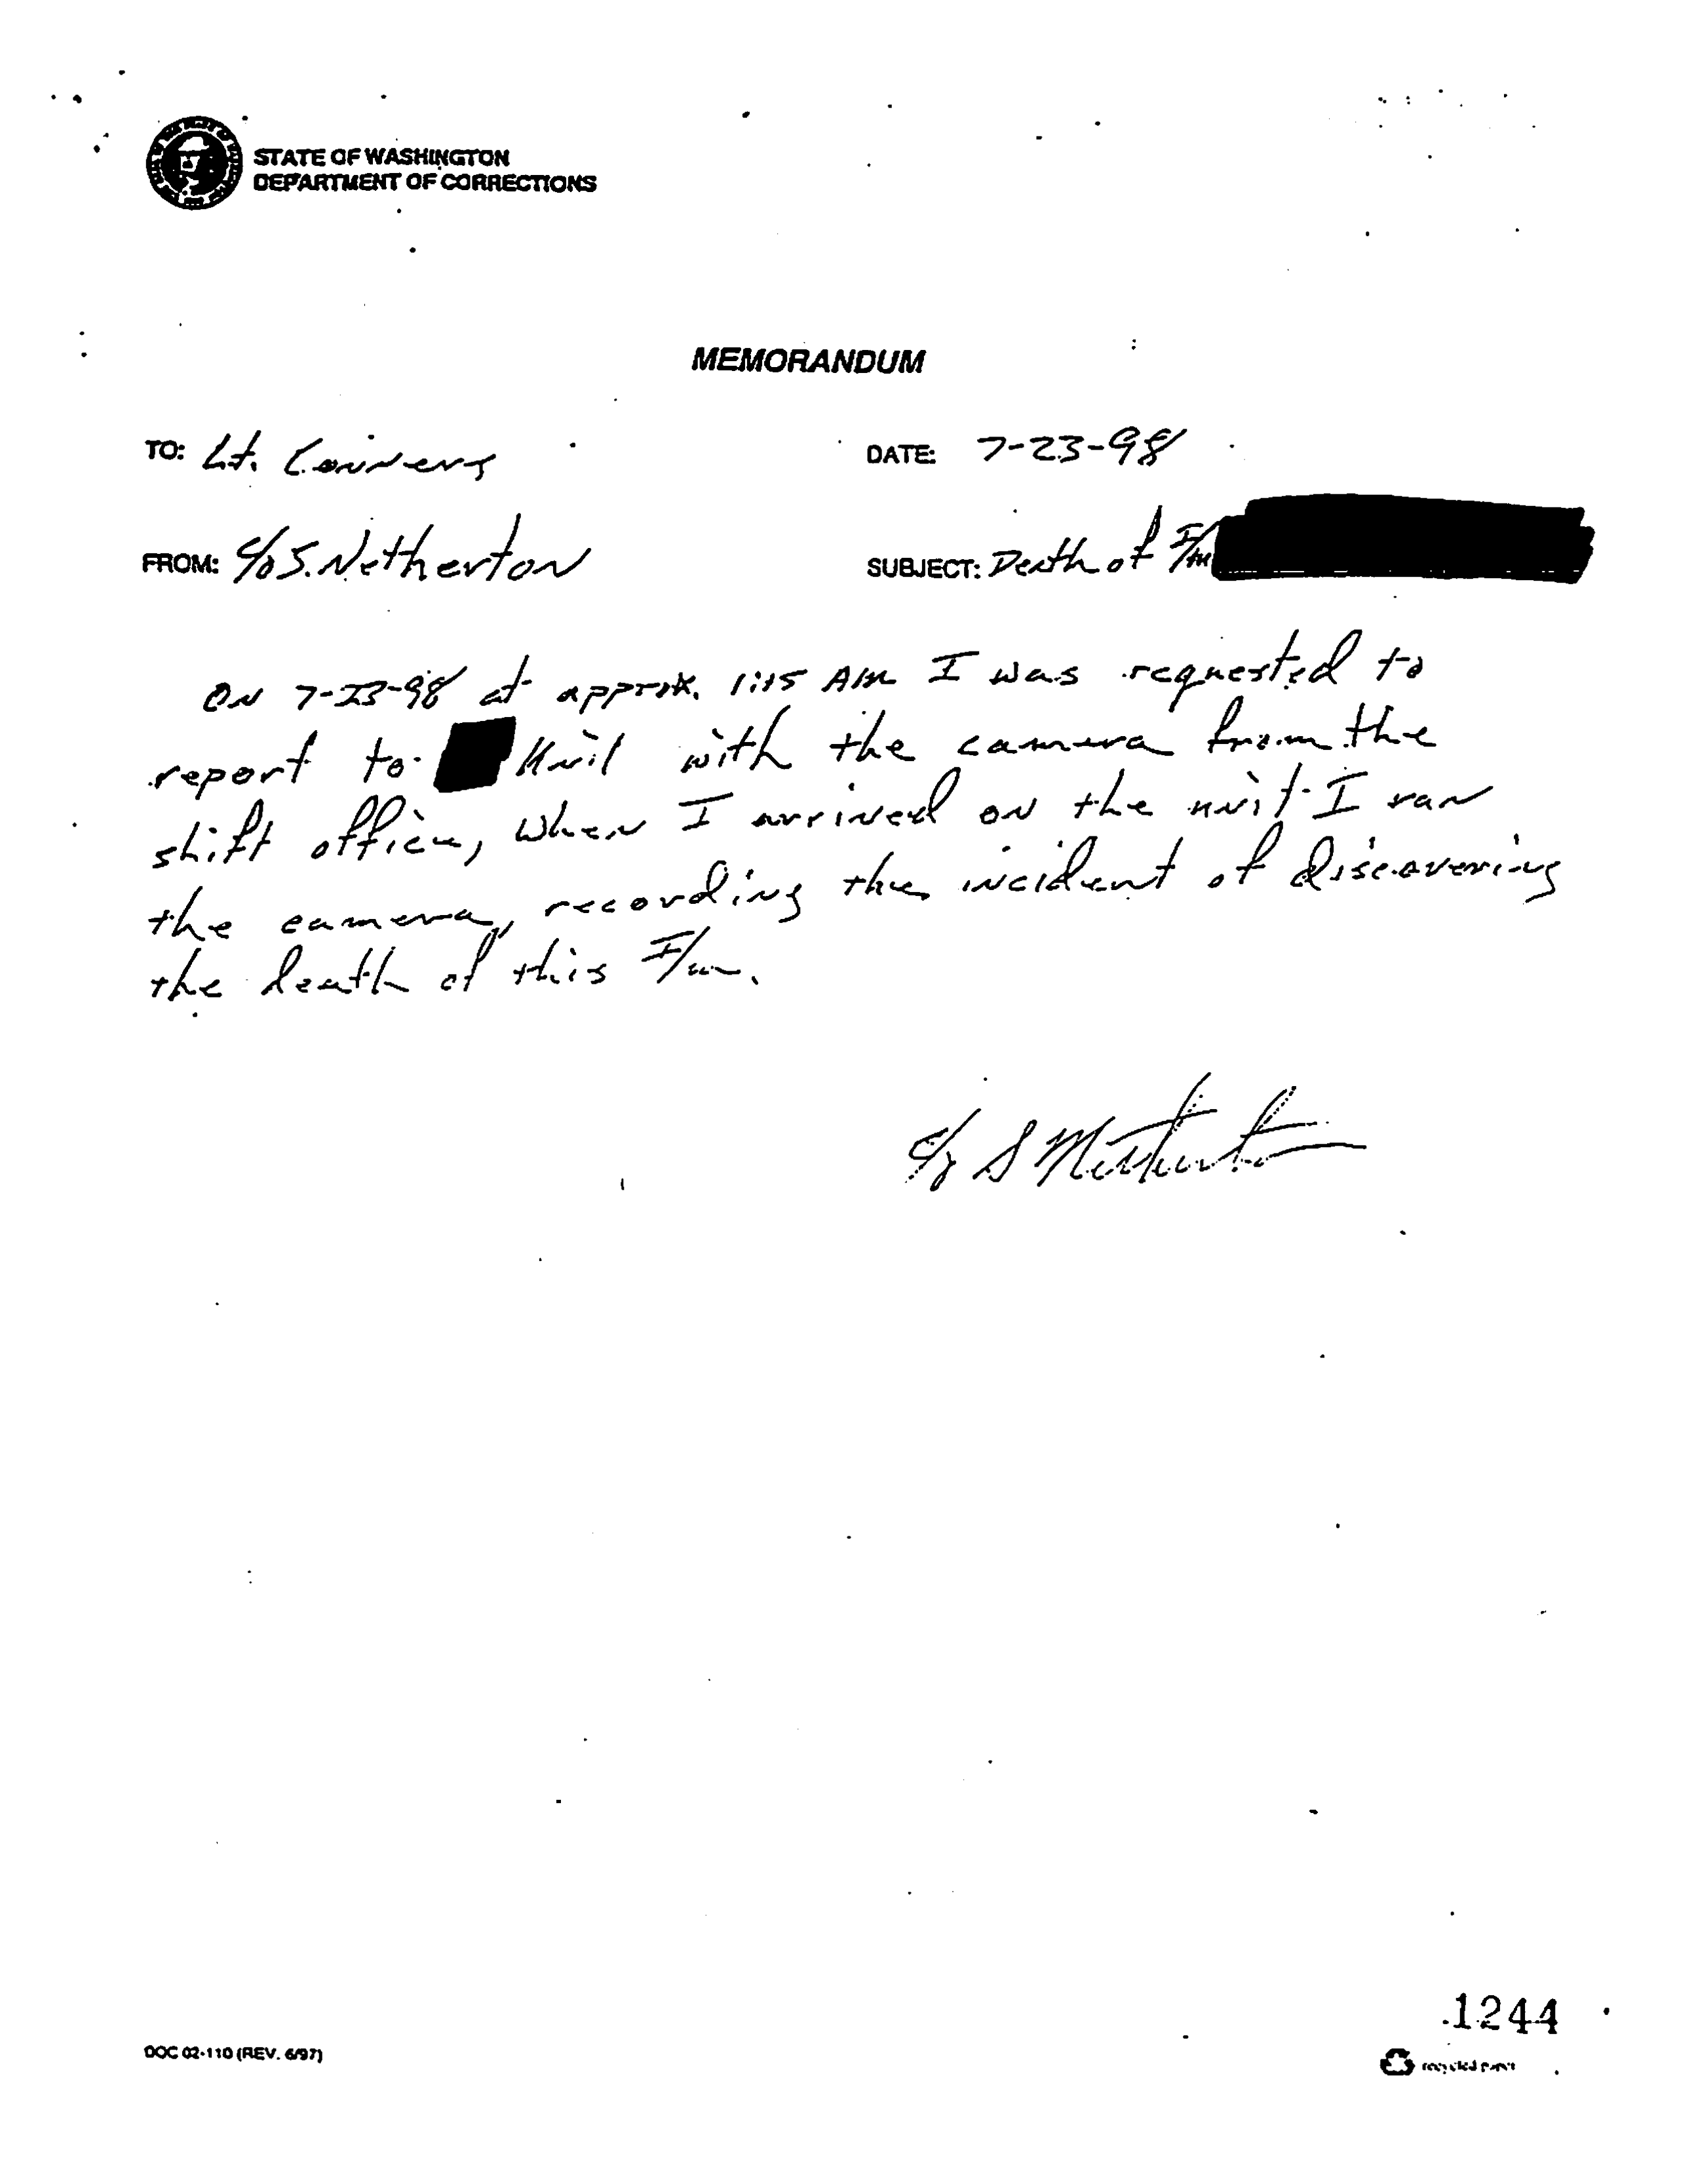 STATE OF WASHINGTON
DEPARTMENT OF CORRECTIONS
MEMORANDUM
TO: Lt. Conners
DATE: 7-23-98
FROM: C/O S. Netherton
SUBJECT: Death of I/m
ON 7-23-98 at approx. 1:15 AM I was requested to
report to Unit with the camera from the
shift office, When I arrived on the unit I ran
the camera, recording the incident of discovering
the death of this I/m.
C/O S Netherton
1244
DOC 02-110 (REV. 6/97)
recycled paper